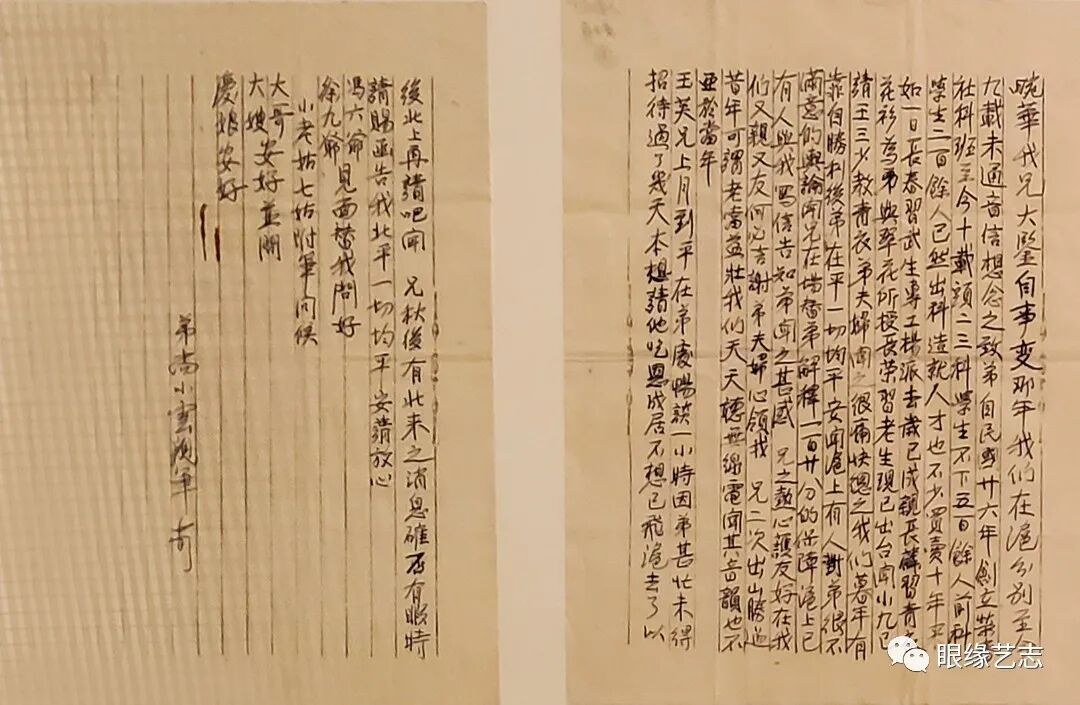 畹華我兄大鑒自事變那年我们在滬分别至今
九載未通音信想念之致弟自民國廿六年創立荣春
社科班至今十載頭二三科學生不下五百餘人前科
學生二百餘人已然出科造就人才也不少買賣十年
如一日長春習武生專工楊派去歲已成親長麟習青
花衫為弟與翠花所授長荣習老生現已出台聞小九已
請王三少教青衣弟夫婦聞之很痛快總之我们暮年有
靠自勝利後弟在平一切均平安聞滬上有人對弟很不
滿意的輿論聞兄在場替弟解釋一百廿分的保障滬上已
有人與我寫信告知弟聞之甚感 兄之熱心護友好在我
们又親又友何必言謝弟夫婦心領我 兄二次出山勝過
昔年可謂老當益壯我们天天聽無線電聞其音韻也不
亞於當年
王英兄上月到平在弟處暢談一小時因弟甚忙未得
招待過了幾天本想請他吃恩成居不想已飛滬去了以
後北上再請吧聞 兄秋後有北来之消息確否有暇時
請賜函告我北平一切均平安請放心
馮六爺
徐九爺見面替我問好
小老姑七姑附筆问候
大哥
大嫂安好並問
慶娘安好
弟尚小雲
眼缘艺志